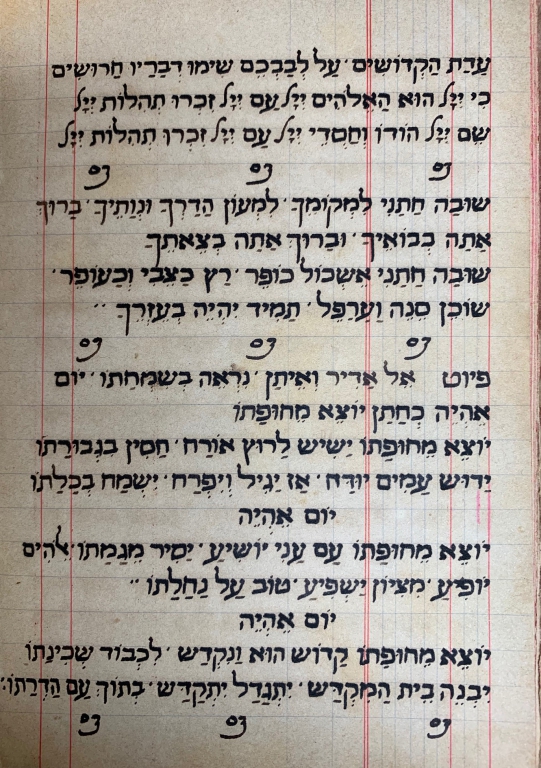 עֲדַת הַקְּדוֹשִׁים ׳ עַל לְבַבְכֶם שִׂימוּ דְבָרָיו חֲרוּשִׁים
כִּי יְיָ הוּא הָאֱלֹהִים יְיָ עַם יְיָ זִכְרוּ תְהִלּוֹת יְיָ
שֵׁם יְיָ הוֹדוֹ וְחַסְדֵי יְיָ עַם יְיָ זִכְרוּ תְהִלּוֹת יְיָ
שׁוּבָה חֲתָנִי לִמְקוֹמָךְ ׳ לִמְעוֹן הַדָּרָךְ וּנְוָתֵיךְ ׳ בָּרוּךְ
אַתָּה בְּבוֹאֶיךָ ׳ וּבָרוּךְ אַתָּה בְּצֵאתֶךָ
שׁוּבָה חֲתָנִי אֶשְׁכּוֹל כּוֹפֶר ׳ רָץ כַּצְּבִי וְכָעוֹפֶר ׳
שׁוֹכֵן סְנֶה וַעֲרָפֶל ׳ תָּמִיד יִהְיֶה בְּעֶזְרֶךָ ׳׳
פיוט אֵל אַדִּיר וְאֵיתָן ׳ נִרְאֶה בְשִׂמְחָתוֹ ׳ יוֹם
אֶהְיֶה כְּחָתָן יוֹצֵא מֵחוּפָּתוֹ
יוֹצֵא מֵחוּפָּתוֹ יָשִׂישׂ לָרוּץ אוֹרַח ׳ חֲסִין בִּגְבוּרָתוֹ
יָדוּשׁ עַמִּים יוּדָּח ׳ אָז יָגִיל וְיִפְרַח ׳ יִשְׂמַח בְּכַלָּתוֹ
יוֹם אֶהְיֶה
יוֹצֵא מֵחוּפָּתוֹ עַם עָנִי יוֹשִׁיעַ ׳ יָסִיר מְגַמָּתוֹ ׳ אלהים
יוֹפִיעַ ׳ מִצִּיּוֹן יַשְׁפִּיעַ ׳ טוּב עַל נַחֲלָתוֹ ׳׳
יוֹם אֶהְיֶה
יוֹצֵא מֵחוּפָּתוֹ קָדוֹשׁ הוּא וְנִקְדַּשׁ ׳ לִכְבוֹד שְׁכִינָתוֹ
יִבְנֶה בֵּית הַמִּקְדָּשׁ ׳ יִתְגַּדַּל יִתְקַדַּשׁ ׳ בְּתוֹךְ עַם הַדְרָתוֹ :